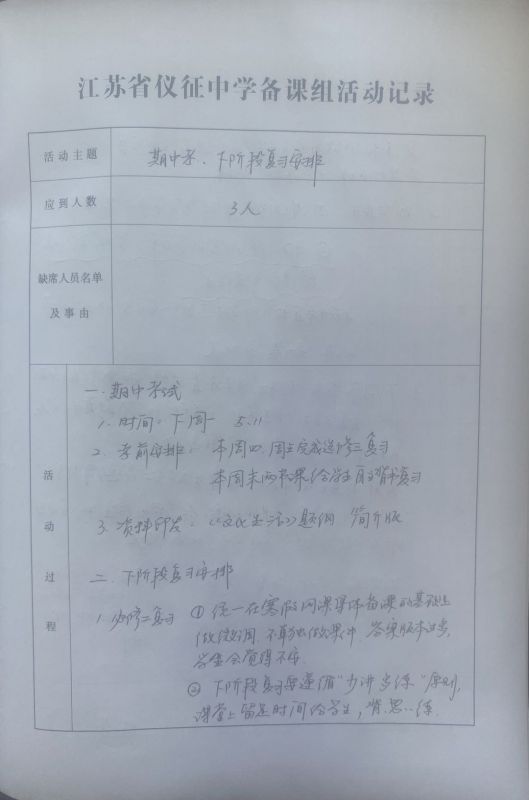 江苏省仪征中学备课组活动记录
活动主题 期中考、下阶段复习安排
应到人数 3人
缺席人员名单
及事由
活动过程
一、期中考试
1. 时间：下周一 5.11
2. 考前安排： 本周四、周五完成必修三复习
本周末两节课给学生自己背书复习
3. 资料印发：《文化生活》题纲 简介版
二、下阶段复习安排
1. 必修二复习 ① 统一在寒假网课集体备课的基础上
做微调，不单独做课件，答案版本过多，
学生会觉得不好
② 下阶段复习要遵循“少讲多练”原则，
课堂上留足时间给学生，背、思、练.